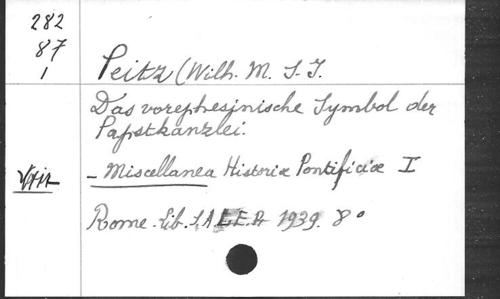 282
87
1
Peitz (Wilh. M. S. J.
Das vorephesinische Symbol der
Papstkanzlei.
– Miscellanea Historiæ Pontificiæ I
Rome. Lib. S.A.L.E.R. 1939. 8°